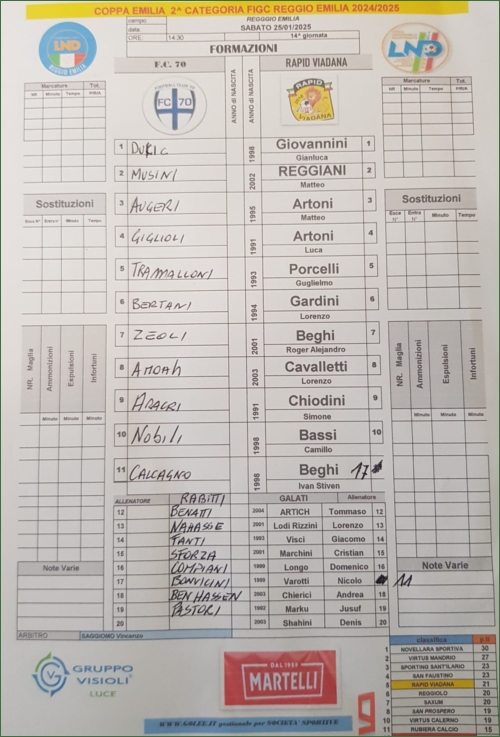 COPPA EMILIA 2^ CATEGORIA FIGC REGGIO EMILIA 2024/2025
campo: REGGGIO EMILIA
data SABATO 25/01/2025
ORE: 14:30 14^ giornata
FORMAZIONI
LND
REGGIO EMILIA
LND
F.C. 70
ANNO di NASCITA
ANNO di NASCITA
RAPID VIADANA
FC 70
RAPID
VIADANA
Marcature Tot.
NR Minuto Tempo P/R/A
Marcature Tot.
NR Minuto Tempo P/R/A
1 DURIC 1998 Giovannini Gianluca 1
2 MUSINI 2002 REGGIANI Matteo 2
3 AUGERI 1995 Artoni Matteo 3
4 GIGLIOLI 1991 Artoni Luca 4
5 TRAMALLONI 1993 Porcelli Guglielmo 5
6 BERTANI 1994 Gardini Lorenzo 6
7 ZEOLI 2001 Beghi Roger Alejandro 7
8 AMOAH 2003 Cavalletti Lorenzo 8
9 ADAGRI 1991 Chiodini Simone 9
10 NOBILI 1998 Bassi Camillo 10
11 CALCAGNO 1998 Beghi Ivan Stiven 17
Sostituzioni
Esce N° Entra N° Minuto Tempo
Sostituzioni
Esce N° Entra N° Minuto Tempo
NR. Maglia Ammonizioni Espulsioni Infortuni
Minuto Minuto Minuto
NR. Maglia Ammonizioni Espulsioni Infortuni
Minuto Minuto Minuto
ALLENATORE RABITTI GALATI Allenatore
12 BENATTI 2004 ARTICH Tommaso 12
13 NAHASSE 2001 Lodi Rizzini Lorenzo 13
14 TANTI 1993 Visci Giacomo 14
15 SFORZA 2001 Marchini Cristian 15
16 COMPIANI 1988 Longo Domenico 16
17 BONVICINI 1999 Varotti Nicolo 11
18 BEN HASSEN 2003 Chierici Andrea 18
19 PASTORI 1992 Marku Jusuf 19
20 2003 Shahini Denis 20
Note Varie
Note Varie
ARBITRO SAGGIOMO Vincenzo
GRUPPO
VISIOLI
LUCE
DAL 1959
MARTELLI
WWW.GOLEE.IT gestionale per SOCIETA' SPORTIVE
classifica p.ti
1 NOVELLARA SPORTIVA 30
2 VIRTUS MANDRIO 27
3 SPORTING SANT'ILARIO 23
4 SAN FAUSTINO 23
5 RAPID VIADANA 21
6 REGGIOLO 20
7 SAXUM 20
8 SAN PROSPERO 19
10 VIRTUS CALERNO 19
11 RUBIERA CALCIO 15